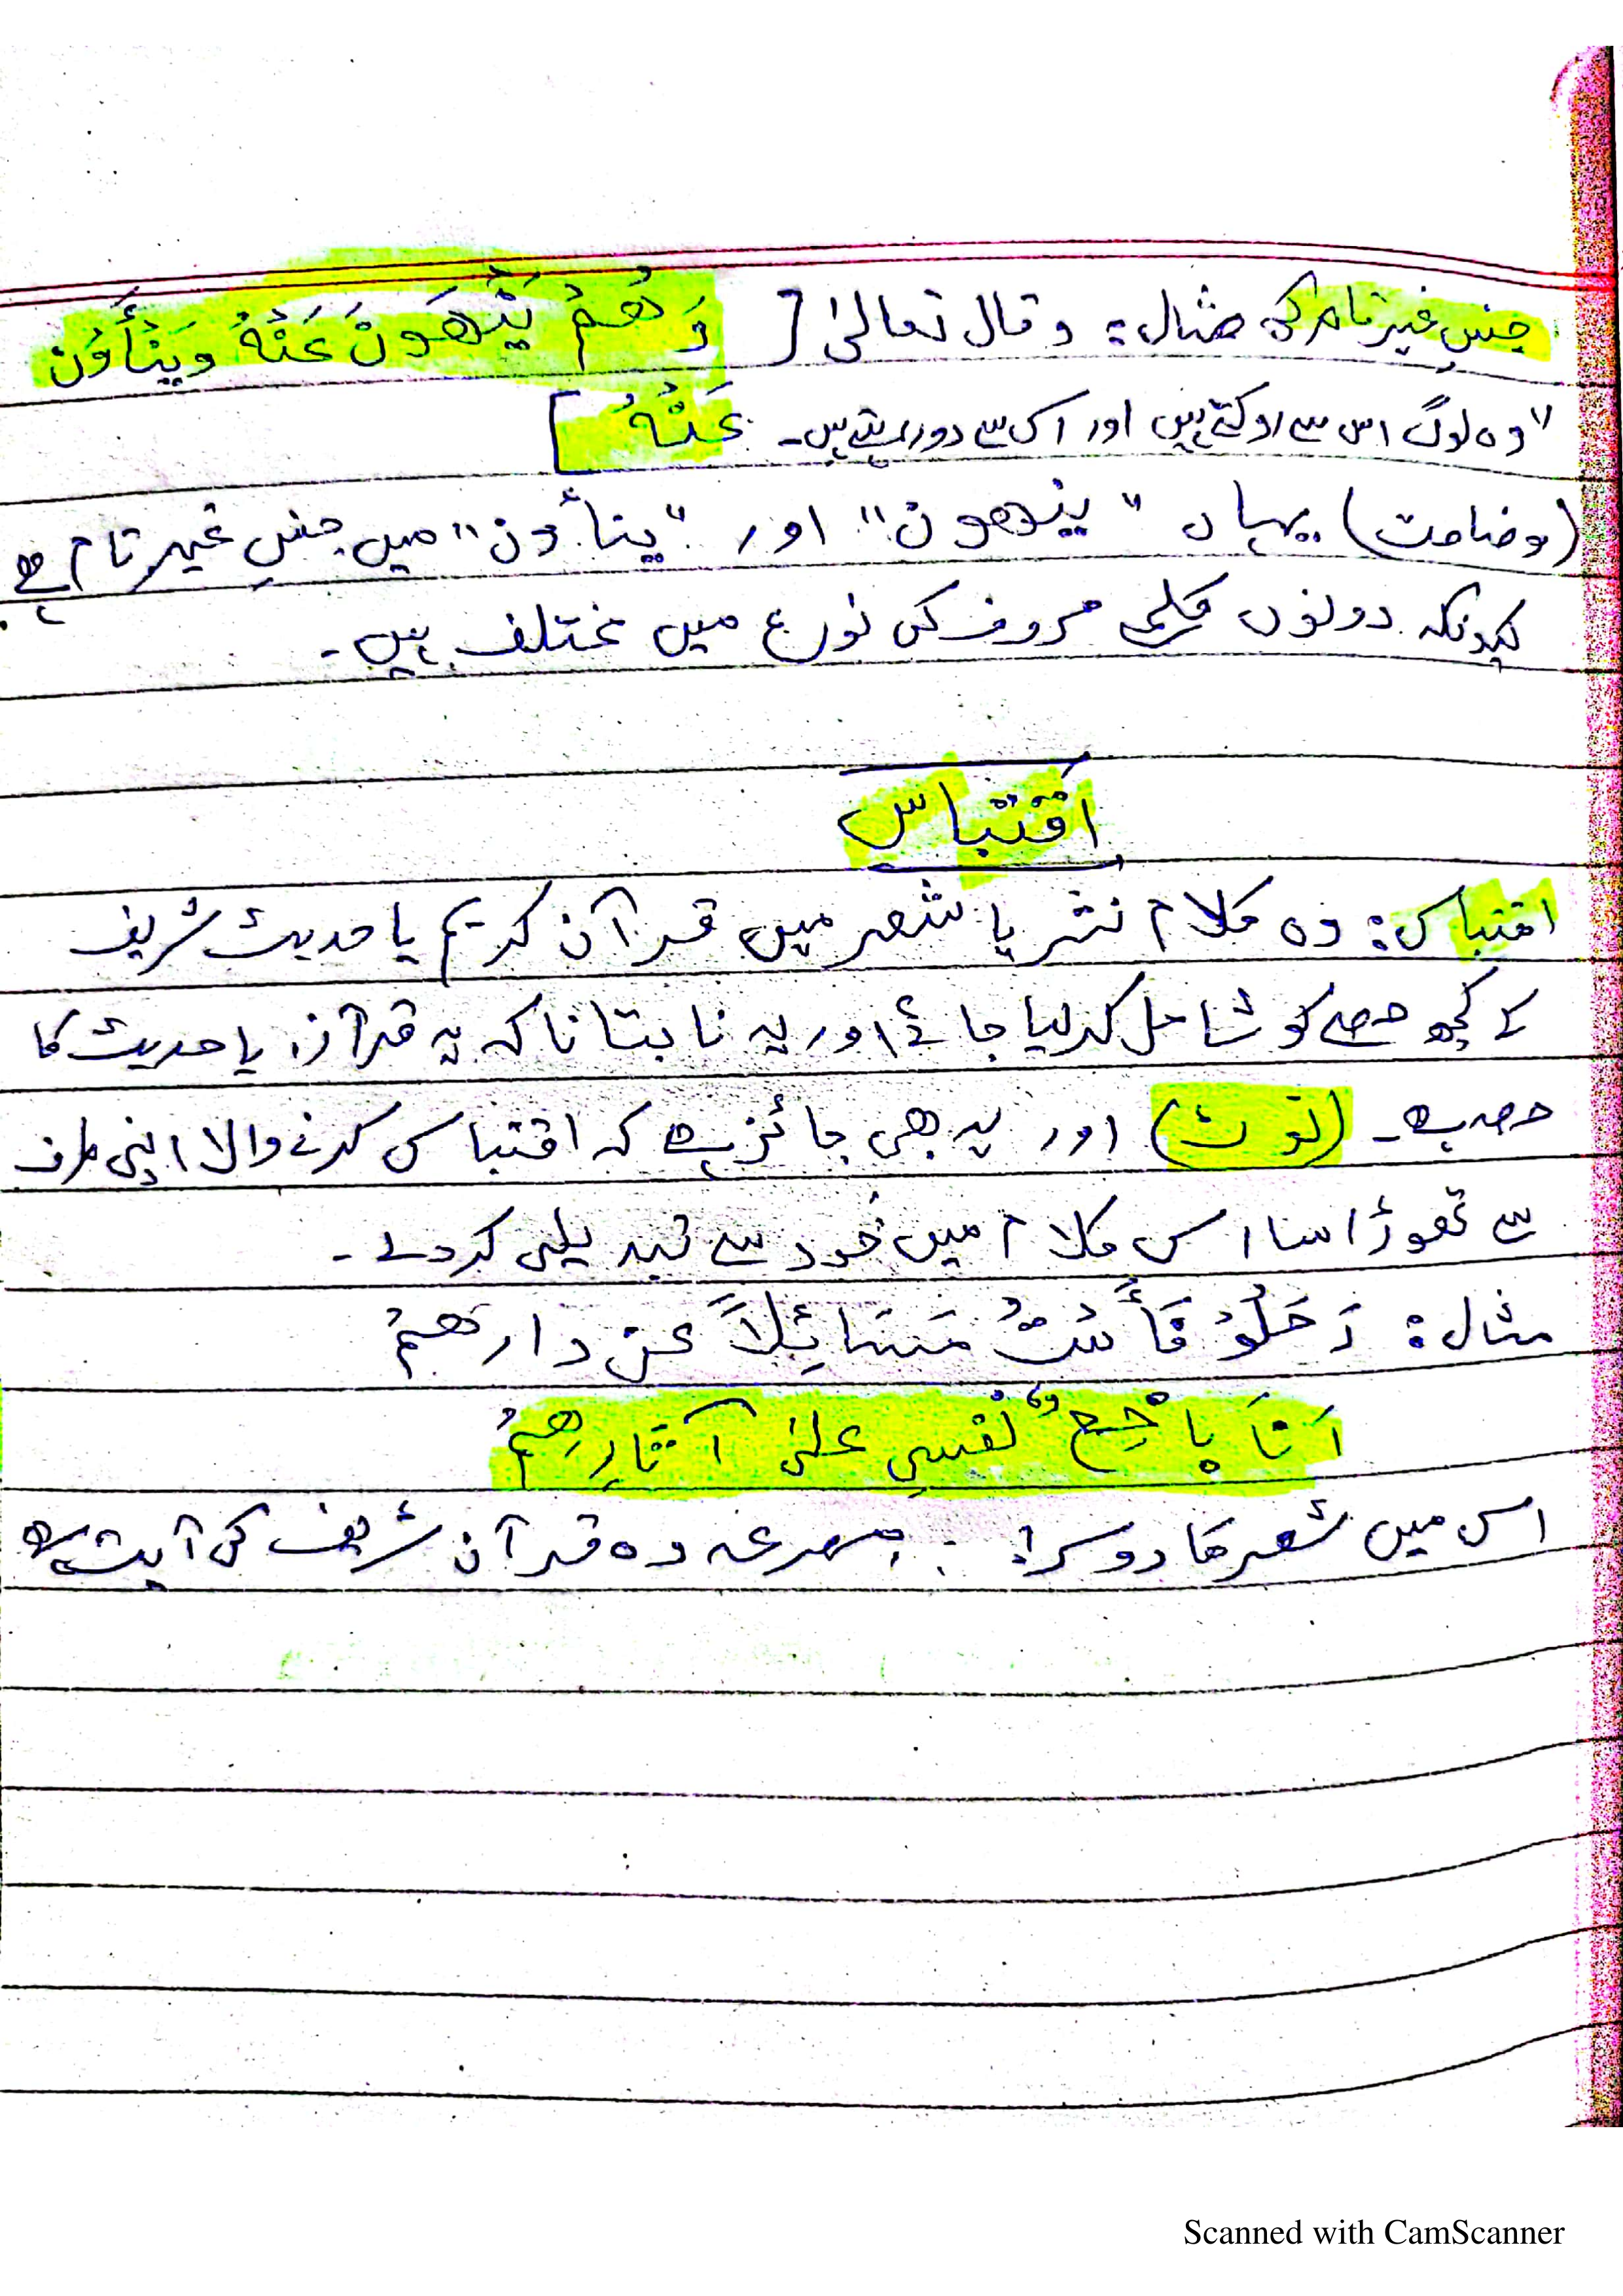 جنس غیر تام کی مثال: وقال تعالیٰ [ وَهُمْ يَنْهَوْنَ عَنْهُ وَيَنْأَوْنَ
عَنْهُ ] "وہ لوگ اس سے روکتے ہیں اور اس سے دور رہتے ہیں۔
(وضاحت) یہاں "ینھون" اور "ینأون" میں جنسِ غیر تام ہے
کیونکہ دونوں کلمے حروف کی نوع میں مختلف ہیں۔
اقتباس
اقتباس: وہ کلام نثر یا شعر میں قرآن کریم یا حدیث شریف
کے کچھ حصے کو شامل کر لیا جائے اور یہ نا بتانا کہ یہ قرآن یا حدیث کا
حصہ ہے۔ (نوٹ) اور یہ بھی جائز ہے کہ اقتباس کرنے والا اپنی طرف
سے تھوڑا سا اس کلام میں خود سے تبدیلی کر دے۔
مثال: رَحَلُوْ فَأَسْتُ مَسَائِلاً عن دارھمْ
اَنَا بَاخِعٌ نفسِی علیٰ آثارِهِمْ
اس میں شعر کا دوسرا مصرعہ وہ قرآن شریف کی آیت ہے
Scanned with CamScanner